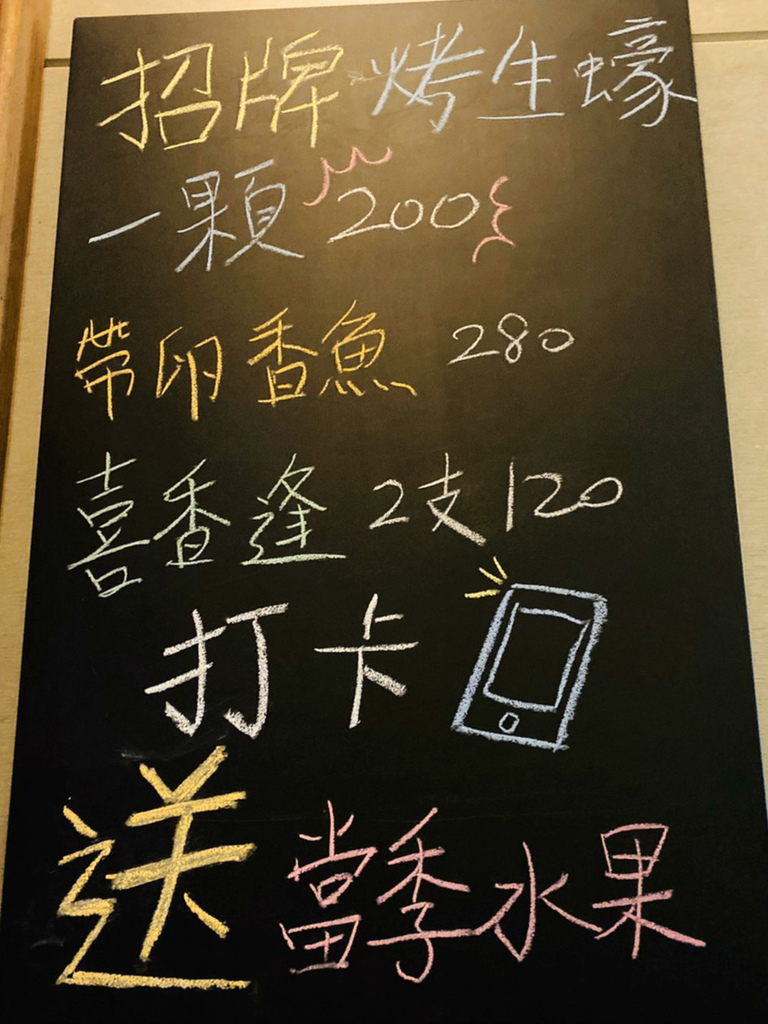 招牌烤生蠔
一顆200
帶卵香魚 280
喜香逢 2支120
打卡
送當季水果